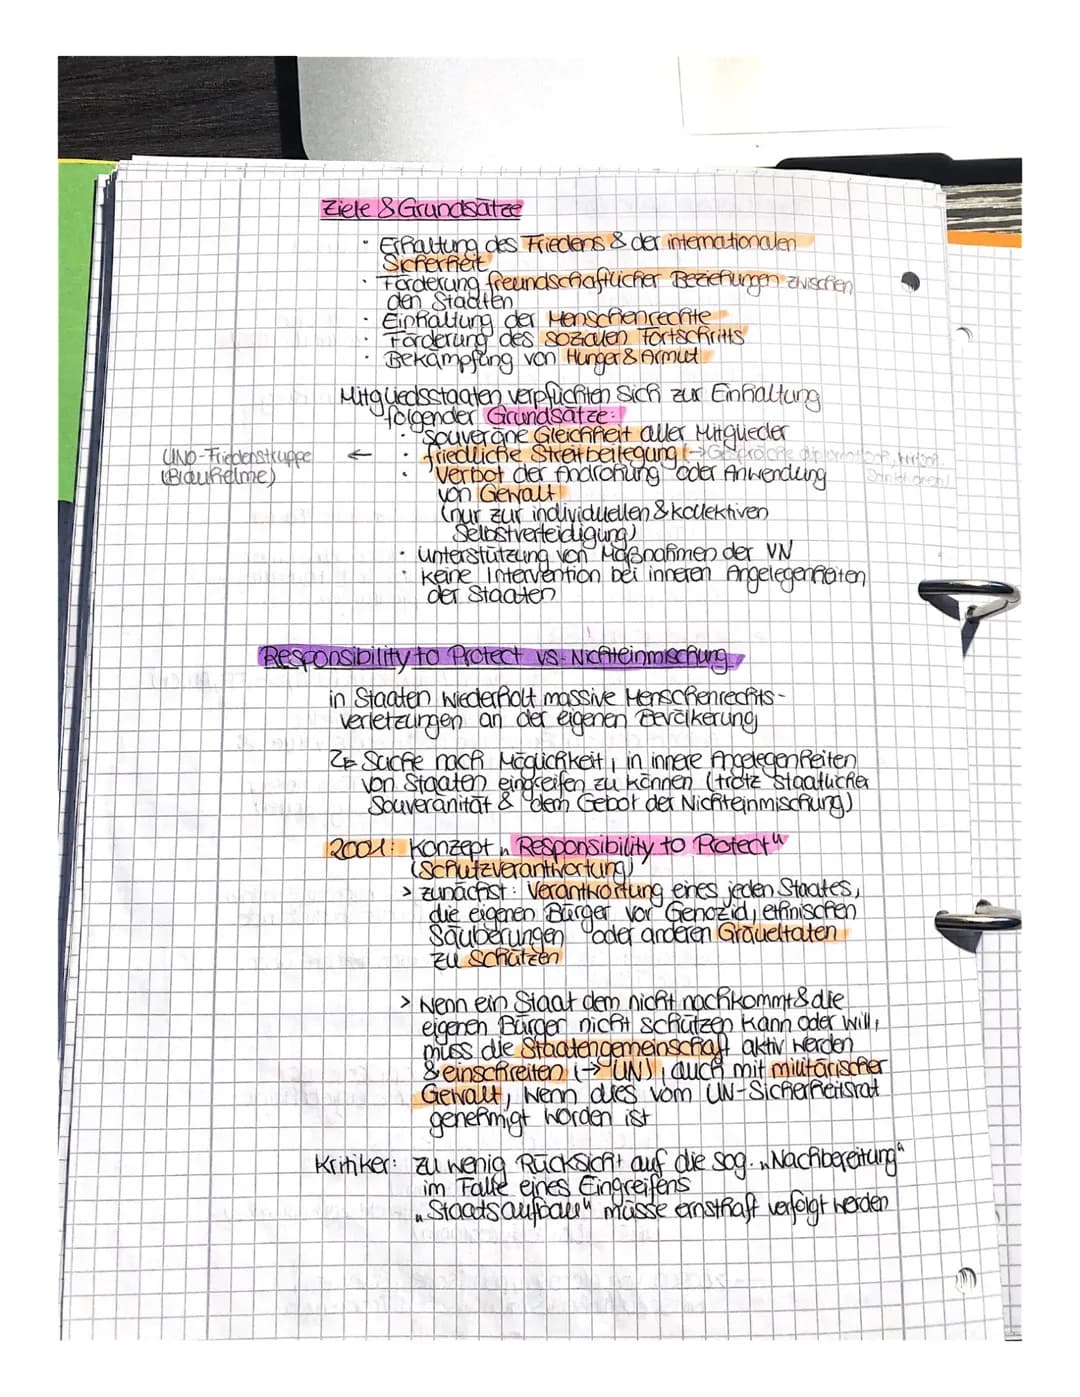 Ziele & Grundsätze
· Erhaltung des Friedens & der internationalen
Sicherheit
· Förderung freundschaftlicher Beziehungen zwischen
den Staaten
· Einhaltung der Menschenrechte
· Förderung des sozialen Fortschritts
· Bekämpfung von Hunger & Armut
Mitgliedsstaaten verpflichten sich zur Einhaltung
folgender Grundsätze:
· souveräne Gleichheit aller Mitglieder
· friedliche Streitbeilegung (→ Gespräche,
UNO-Friedenstruppe ←
(Blauhelme)
· Verbot der Androhung oder Anwendung
von Gewalt
(nur zur individuellen & kollektiven
Selbstverteidigung)
· Unterstützung von Maßnahmen der VN
· keine Intervention bei inneren Angelegenheiten
der Staaten
Responsibility to Protect vs. Nichteinmischung
in Staaten wiederholt massive Menschenrechts-
verletzungen an der eigenen Bevölkerung
↳ Suche nach Möglichkeit, in innere Angelegenheiten
von Staaten eingreifen zu können (trotz staatlicher
Souveränität & dem Gebot der Nichteinmischung)
2001: Konzept „Responsibility to Protect“
(Schutzverantwortung)
> zunächst: Verantwortung eines jeden Staates,
die eigenen Bürger vor Genozid, ethnischen
Säuberungen oder anderen Gräueltaten
zu schützen
> Wenn ein Staat dem nicht nachkommt & die
eigenen Bürger nicht schützen kann oder will,
muss die Staatengemeinschaft aktiv werden
& einschreiten (→ UN), auch mit militärischer
Gewalt, wenn dies vom UN-Sicherheitsrat
genehmigt worden ist
Kritiker: zu wenig Rücksicht auf die sog. „Nachbereitung“
im Falle eines Eingreifens
„Staatsaufbau“ müsse ernsthaft verfolgt werden